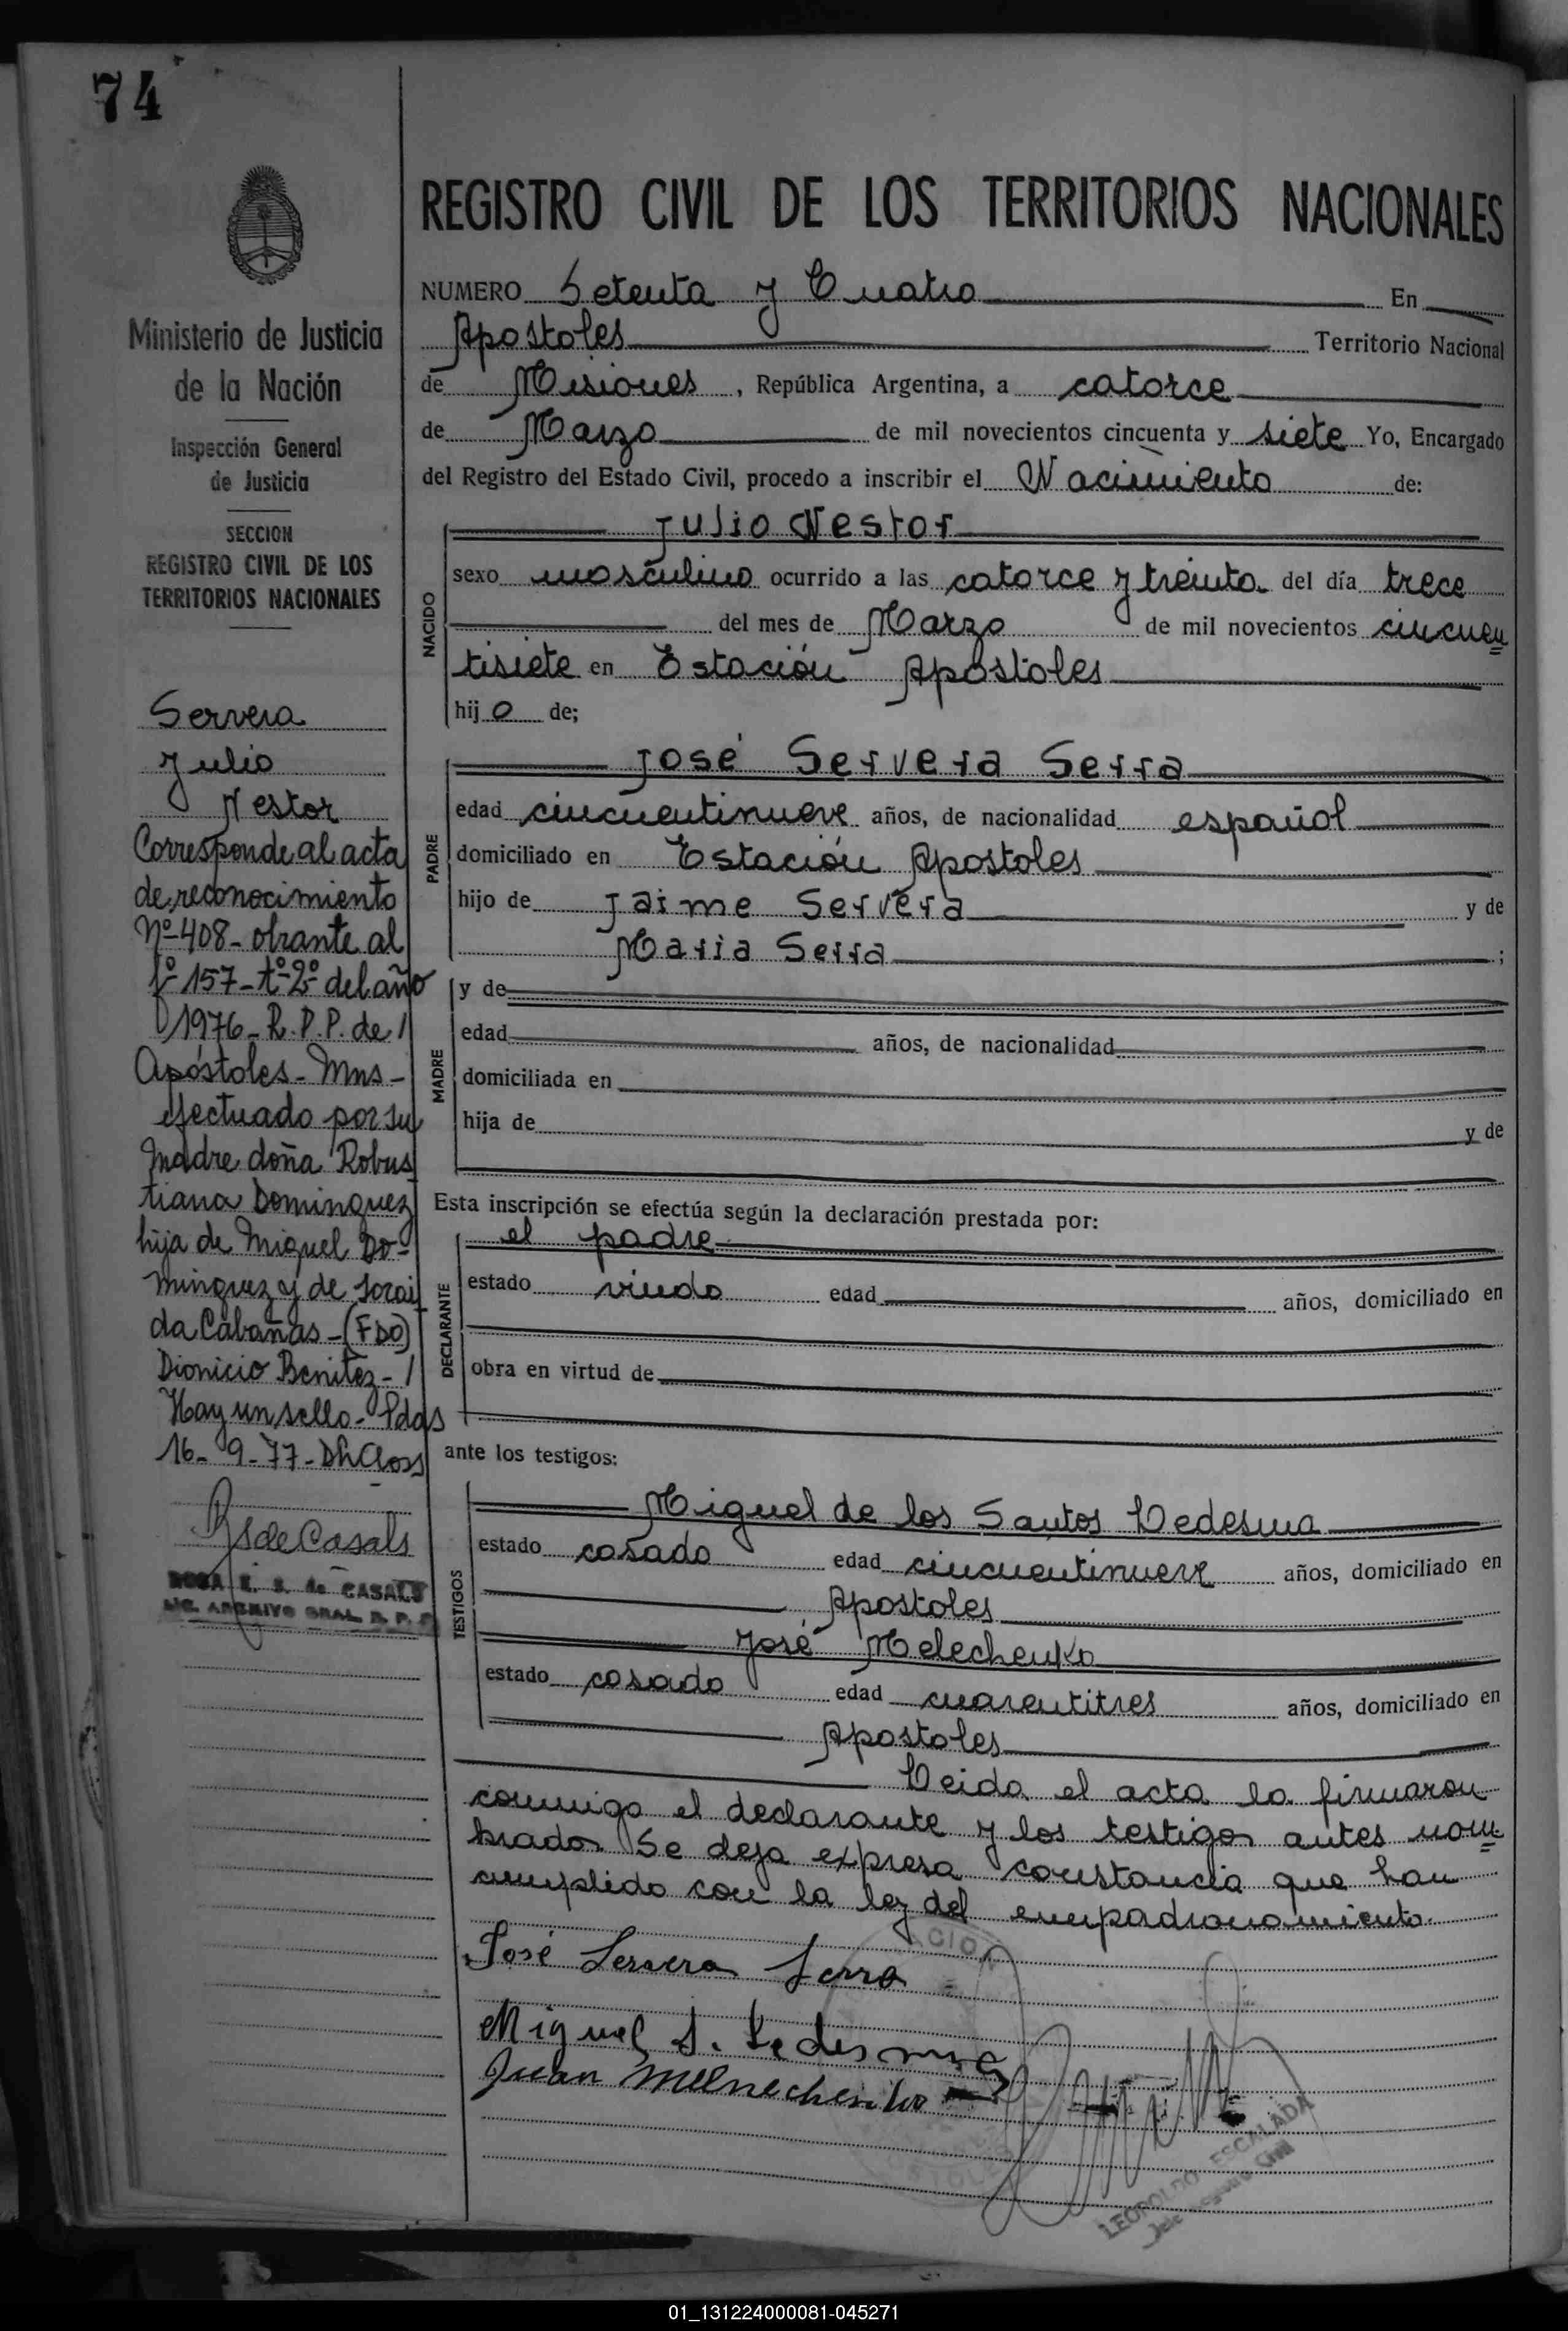 74
REGISTRO CIVIL DE LOS TERRITORIOS NACIONALES
NUMERO Setenta y Cuatro En
Apostoles Territorio Nacional
de Misiones, República Argentina, a catorce
de Marzo de mil novecientos cincuenta y siete Yo, Encargado
del Registro del Estado Civil, procedo a inscribir el Nacimiento de:
NACIDO
Julio Nestor
sexo masculino ocurrido a las catorce y treinta del día trece
del mes de Marzo de mil novecientos cincuen=
tisiete en Estación Apostoles
hijo de;
PADRE
José Servera Serra
edad cincuentinueve años, de nacionalidad español
domiciliado en Estación Apostoles
hijo de Jaime Servera y de
Maria Serra ;
MADRE
y de
edad años, de nacionalidad
domiciliada en
hija de y de
Esta inscripción se efectúa según la declaración prestada por:
DECLARANTE
el padre
estado viudo edad años, domiciliado en
obra en virtud de
ante los testigos:
TESTIGOS
Miguel de los Santos Ledesma
estado casado edad cincuentinueve años, domiciliado en
Apostoles
José Melechenko
estado casado edad cuarentitres años, domiciliado en
Apostoles
Leida el acta la firmaron
conmigo el declarante y los testigos antes nom=
brados. Se deja expresa constancia que han
cumplido con la ley del empadronamiento.
José Servera Serra
Miguel S. Ledesma
Juan Melnechenko
LEOPOLDO ESCALADA
Jefe Registro Civil
Ministerio de Justicia
de la Nación
Inspección General
de Justicia
SECCION
REGISTRO CIVIL DE LOS
TERRITORIOS NACIONALES
Servera
Julio
Nestor
Corresponde al acta
de reconocimiento
Nº 408- obrante al
fº 157- tº 2º del año
1976- R.P.P. de /
Apóstoles- Mns-
efectuado por su
madre doña Robus
tiana Dominguez
hija de Miguel Do-
minguez y de Sorai
da Cabañas- (FDO)
Dionicio Benitez- /
Hay un sello- Pdas
16- 9- 77- DhCloss
RSdeCasals
ROSA E. S. de CASALS
ARCHIVO GRAL. R. P. P.
01_131224000081-045271